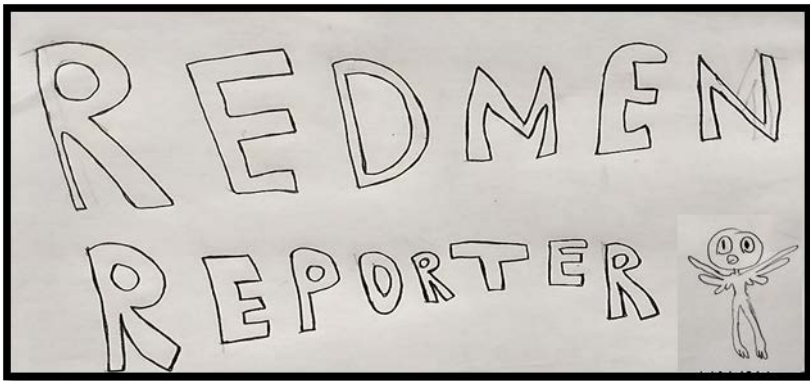 REDMEN
REPORTER